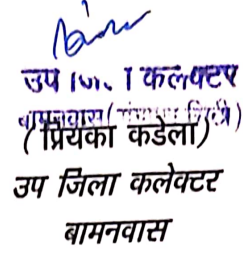 उप जिला कलक्टर
बामनवास
(प्रियंका कडेला)
उप जिला कलेक्टर
बामनवास